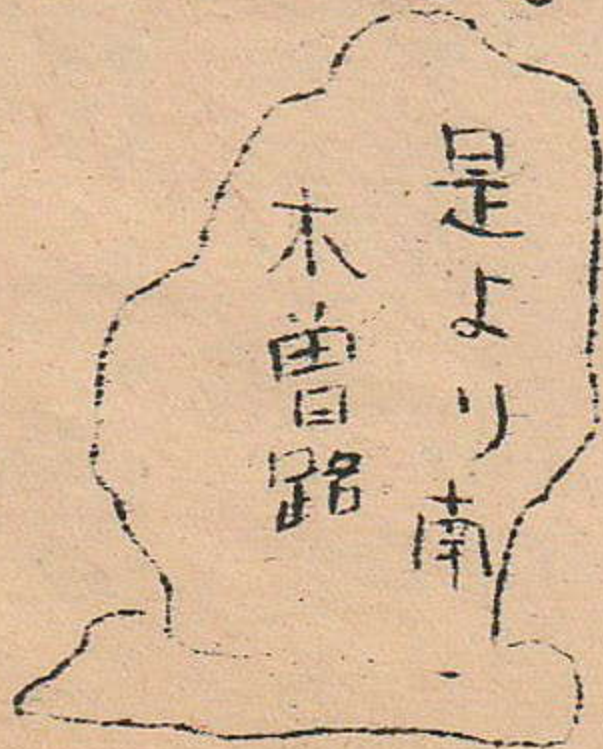 是より南
木曽路